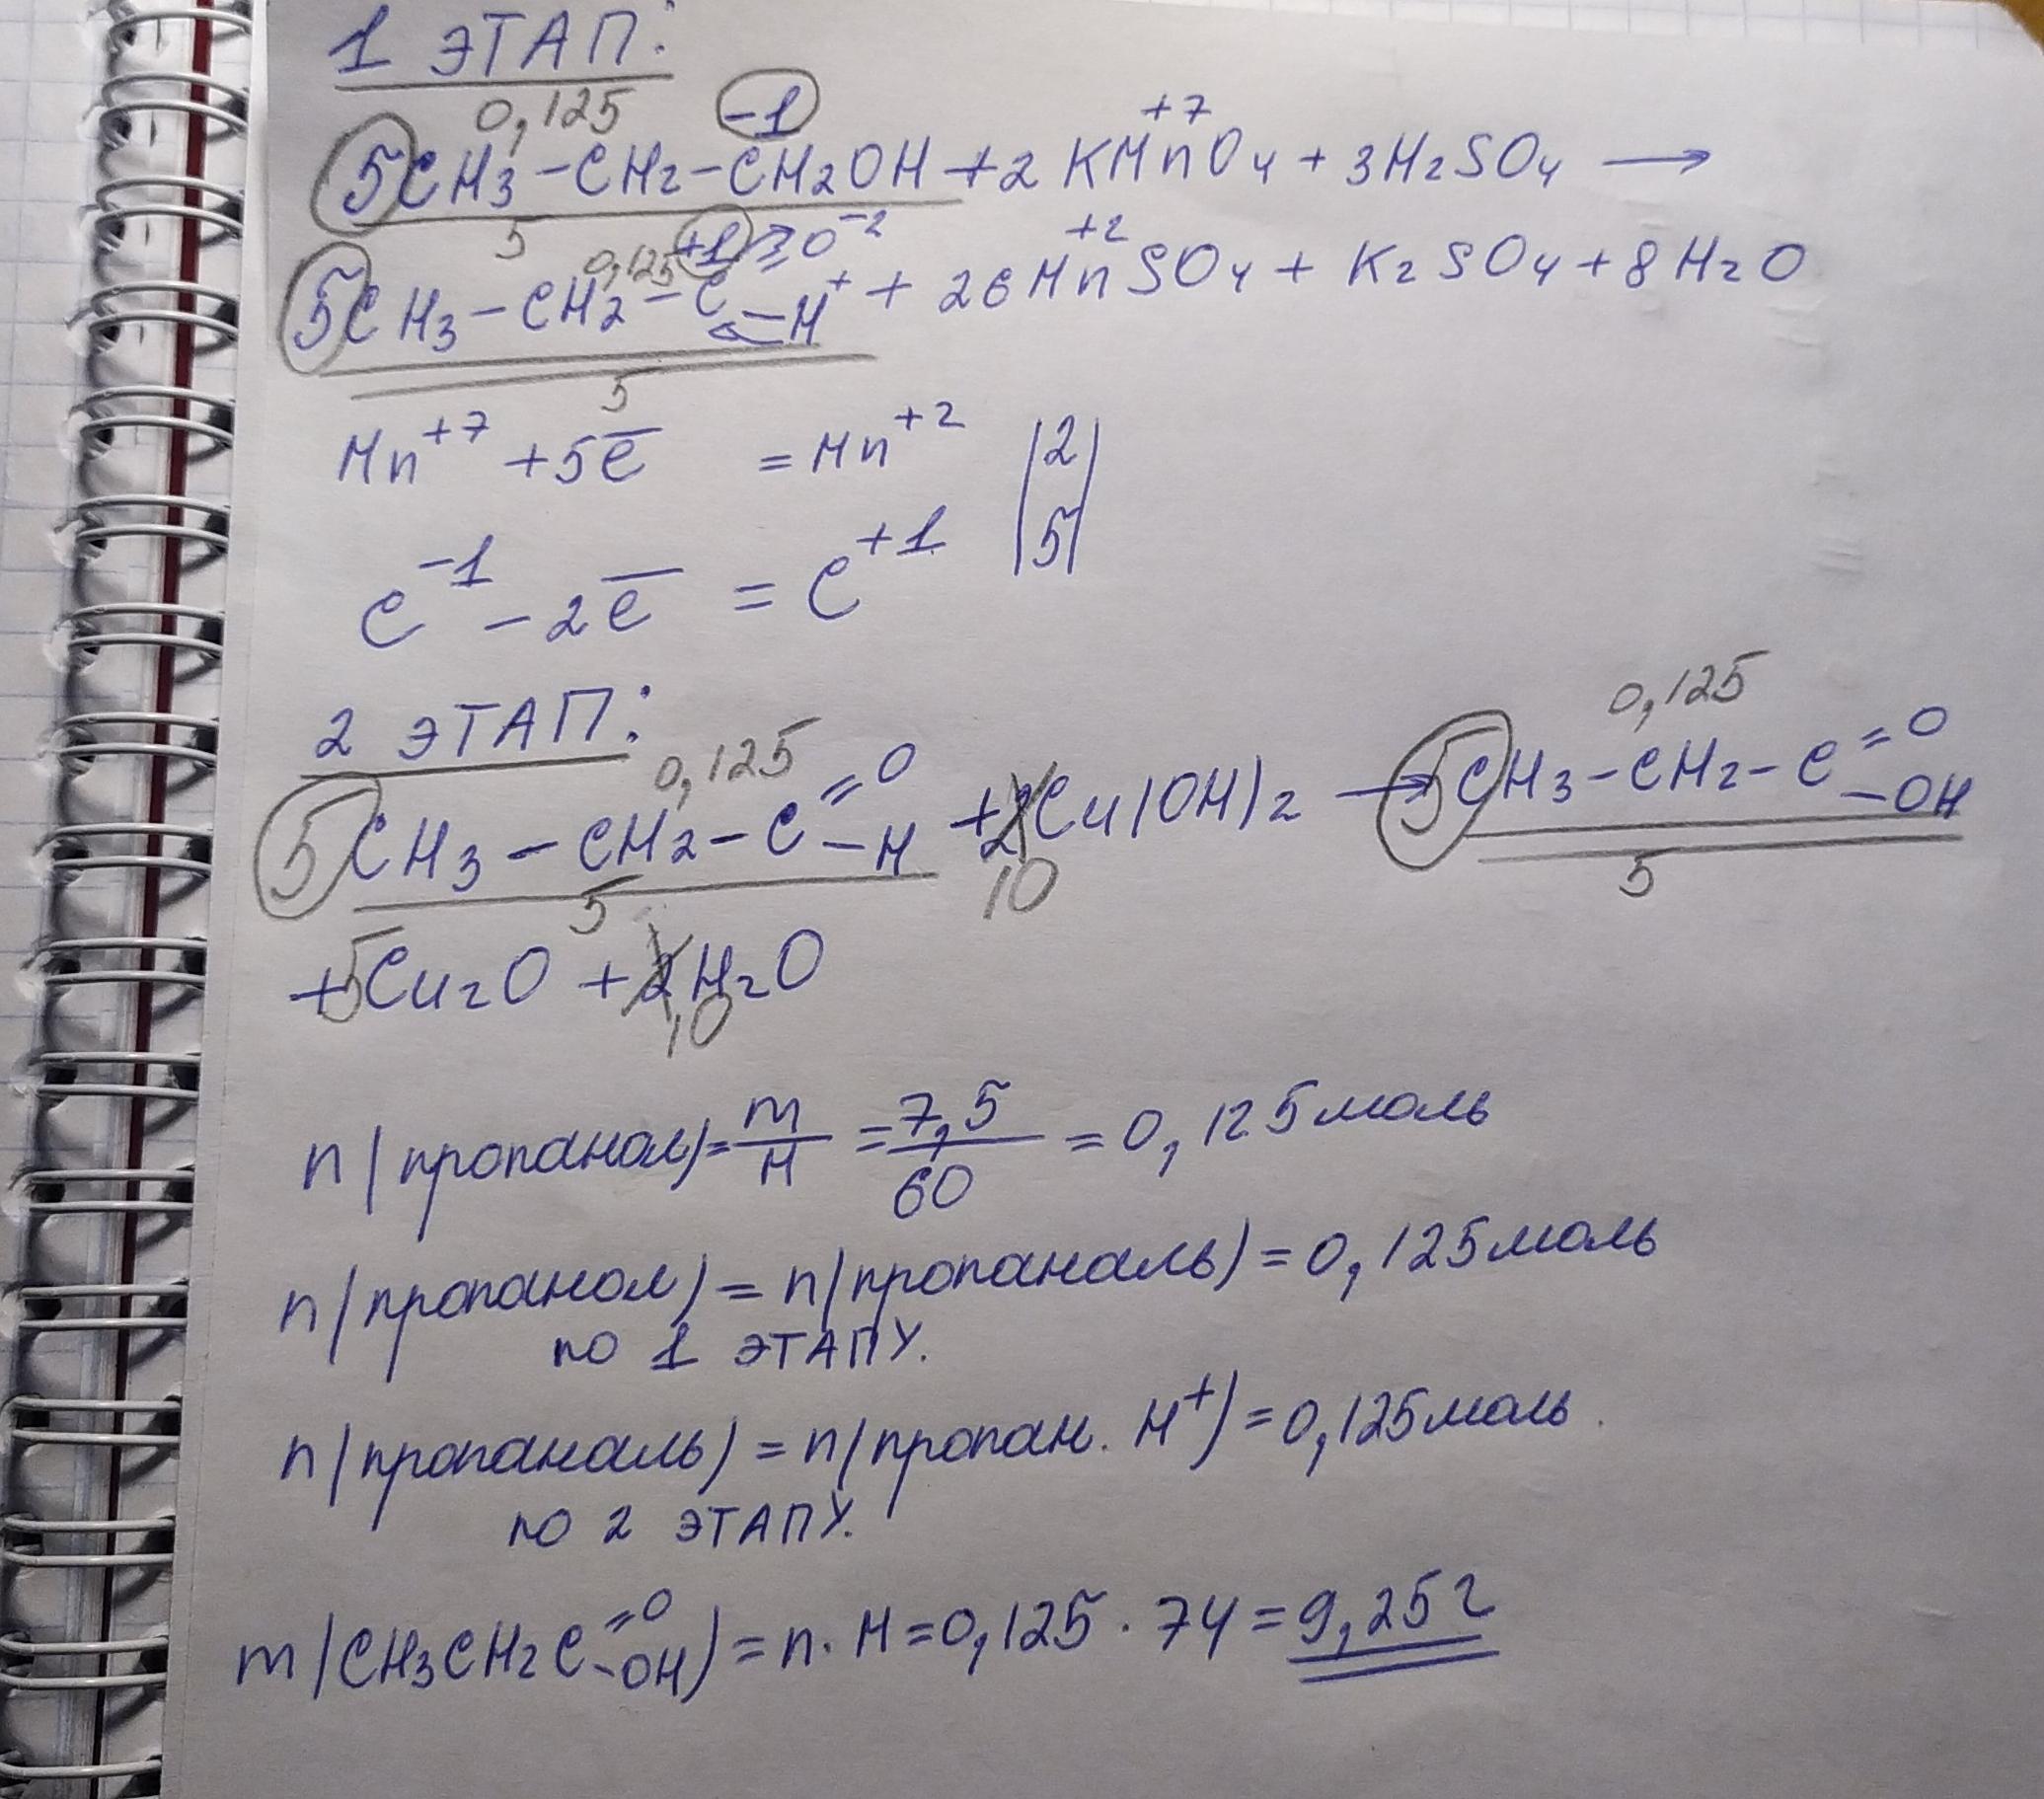 1 ЭТАП:
0,125 -1 +7
5CH3-CH2-CH2OH + 2 KMnO4 + 3H2SO4 →
5 0,125 +1 O-2 +2
5CH3-CH2-C=O-H+ + 2 MnSO4 + K2SO4 + 8H2O
5
Mn+7 + 5e = Mn+2 | 2 |
C-1 - 2e = C+1 | 5 |
2 ЭТАП:
0,125 0,125
5CH3-CH2-C=O-H + 10Cu(OH)2 → 5CH3-CH2-C=O-OH
5 5
+5Cu2O + 10H2O
n(пропанол) = m/M = 7,5/60 = 0,125моль
n(пропанол) = n(пропаналь) = 0,125моль
по 1 ЭТАПУ.
n(пропаналь) = n(пропан. H+) = 0,125моль.
по 2 ЭТАПУ.
m(CH3CH2C=O-OH) = n · M = 0,125 · 74 = 9,25г